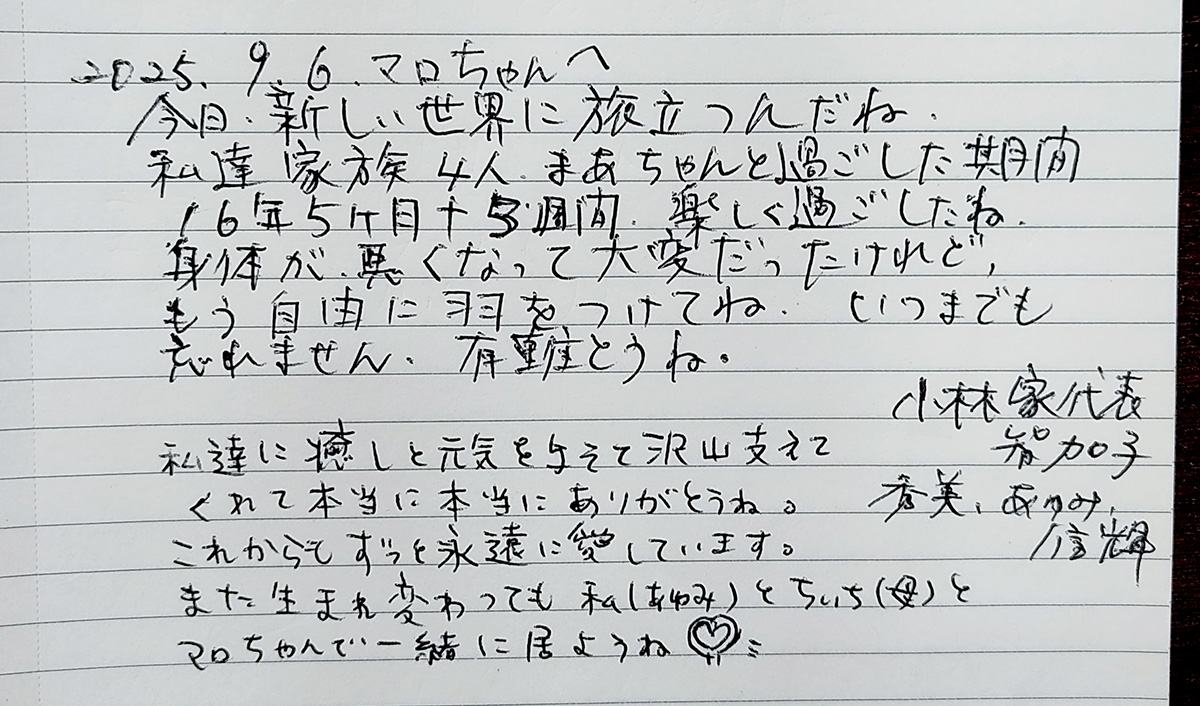 2025.9.6.マロちゃんへ
今日.新しい世界に旅立つんだね.
私達家族4人.まあちゃんと過ごした期間
16年5ヶ月+3週間.楽しく過ごしたね.
身体が.悪くなって大変だったけれど,
もう自由に羽をつけてね. いつまでも
忘れません. 有難とうね。
小林家代表
智加子
秀美、あゆみ,
信輝
私達に癒しと元気を与えて沢山支えて
くれて本当に本当にありがとうね。
これからもずっと永遠に愛しています。
また生まれ変わっても私(あゆみ)とちぃち(母)と
マロちゃんで一緒に居ようね